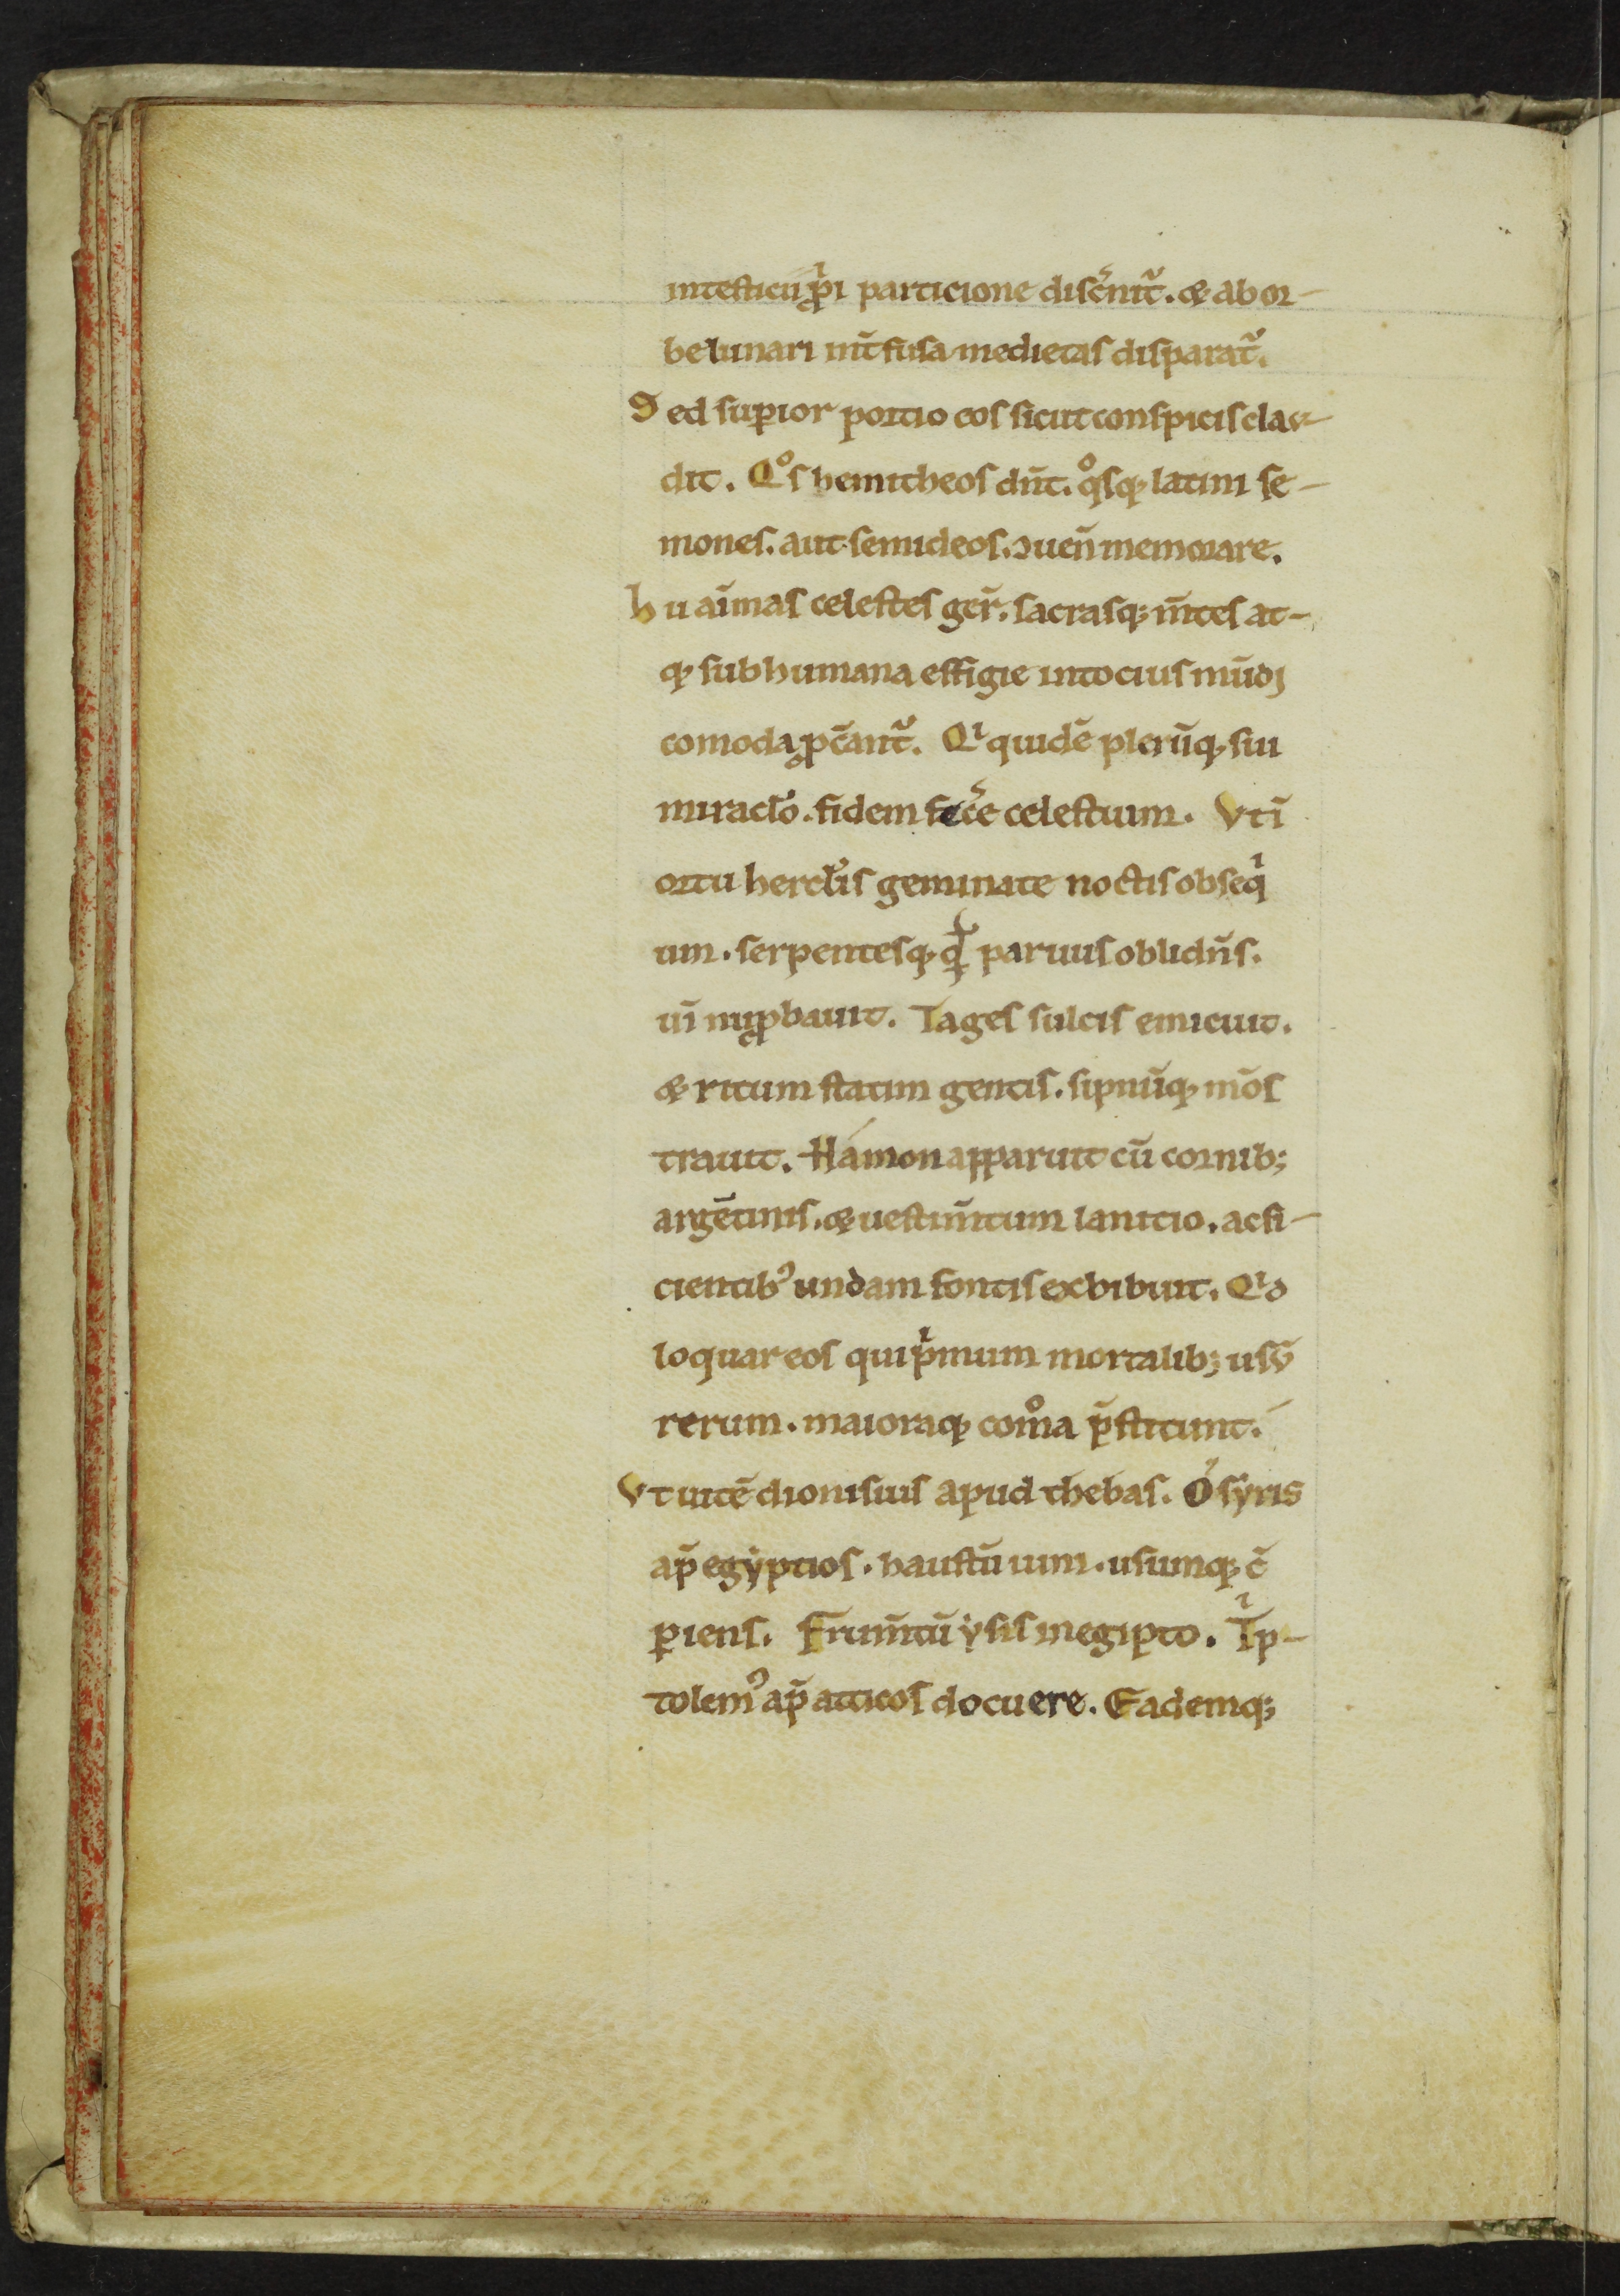 intersticii ꝓpͥi particione disc̓nit᷑. ⁊ ab or-
be lunari int̄fusa medietas disparat᷑.
Sed suꝑior portio eos sicut conspicis clau-
dit. Qͦs hemitheos dn̄t. qͦsq; latini se-
mones. aut semideos. ꝯuen̄ memorare.
hii aīmas celestes ger̄. sacrasq; m̄tes at-
q; sub humana effigie in tocius mūdi
comoda ꝓc̄ant᷑. Qͥ quidē plerūq; sui
miraclo̓. fidem fec̓e celestium. Vt ī
ortu hercl̓is geminate noctis obseqͥ
um. serpentesq; qͦ paruus oblidn̄s.
uī nu ꝓbauit. Tages sulcis emicuit.
⁊ ritum statim gentis. sipnūq; mōs
trauit. Hámon apparuit cū cornib;
argētinis. ⁊ uestim̄tum lanicio. ac si-
cientibꝰ undam fontis exhibuit. Qͥd
loquar eos qui pͥmum mortalib; usū
rerum. maioraq; com̊a p̄stitunt.
Vt uitē dionisius apud thebas. Osyris
ap̄ egẏptios. haustū uini. usumq; c̄
ꝑiens. frum̄tū ẏsis in egipto. Tͥp-
tolemꝰ ap̄ atticos docuere. Eademq;